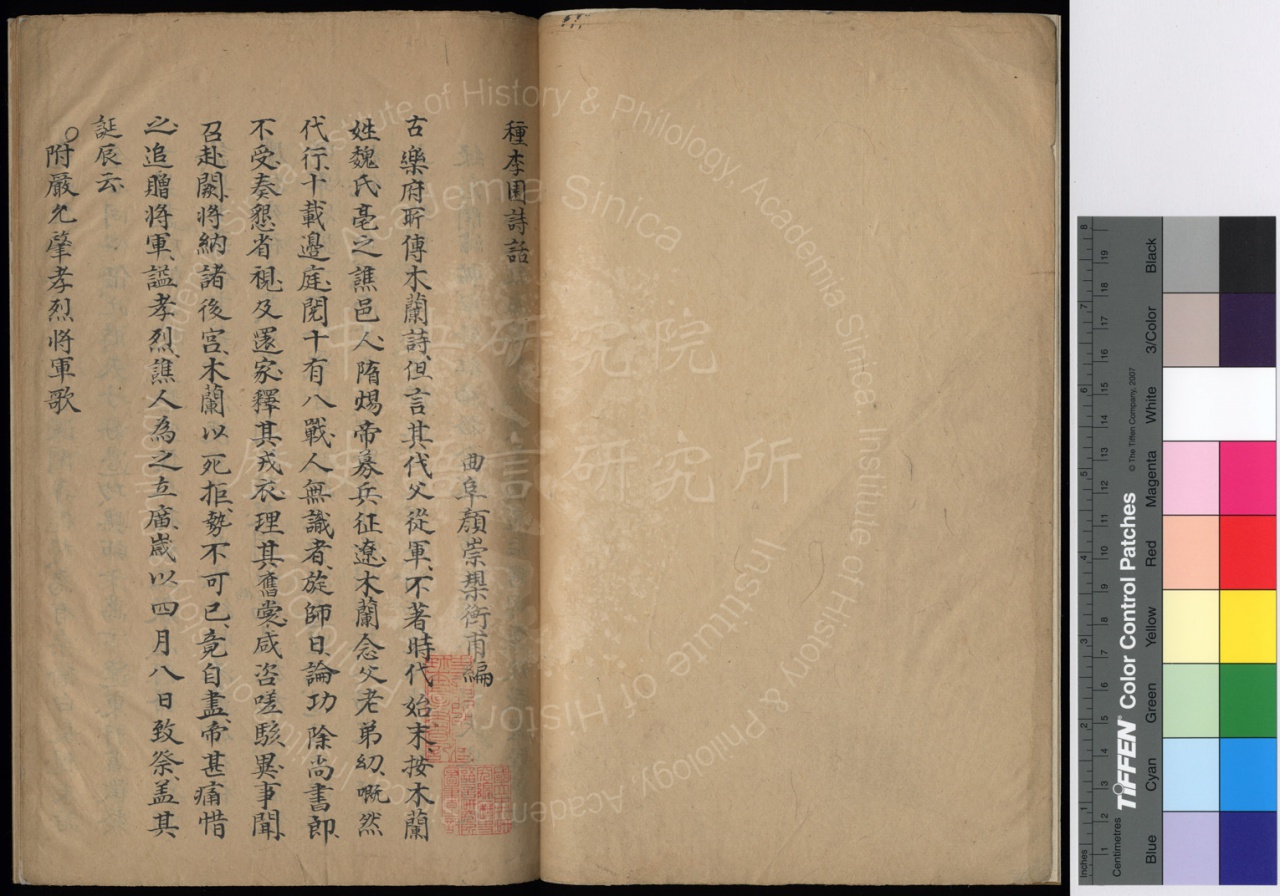 種李園詩話
曲阜顏崇槼衡甫編
古樂府所傳木蘭詩、但言其代父從軍、不著時代始末、按木蘭
姓魏氏、亳之譙邑人、隋煬帝募兵征遼、木蘭念父老弟幼、嘅然
代行、十載邊庭、閱十有八戰、人無識者、旋師日、論功除尚書郎、
不受、奏懇省視、及還家、釋其戎衣、理其舊裳、咸咨嗟駭異、事聞、
召赴闕、將納諸後宮、木蘭以死拒、勢不可已、竟自盡、帝甚痛惜
之、追贈將軍、謚孝烈、譙人為之立廟、歲以四月八日致祭、盖其
誕辰云、
○附嚴允肇孝烈將軍歌
中央研究院
歷史語言研究所
Institute of History & Philology, Academia Sinica
Institute of History & Philology, Academia Sinica
TIFFEN® Color Control Patches
© The Tiffen Company, 2007
Inches
Centimetres
1 2 3 4 5 6 7 8
1 2 3 4 5 6 7 8 9 10 11 12 13 14 15 16 17 18 19
Blue
Cyan
Green
Yellow
Red
Magenta
White
3/Color
Black